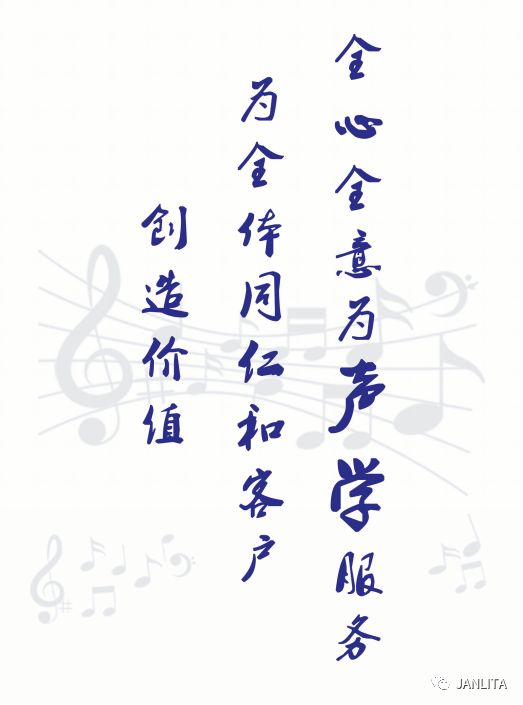 全心全意为声学服务
为全体同仁和客户
创造价值
JANLITA